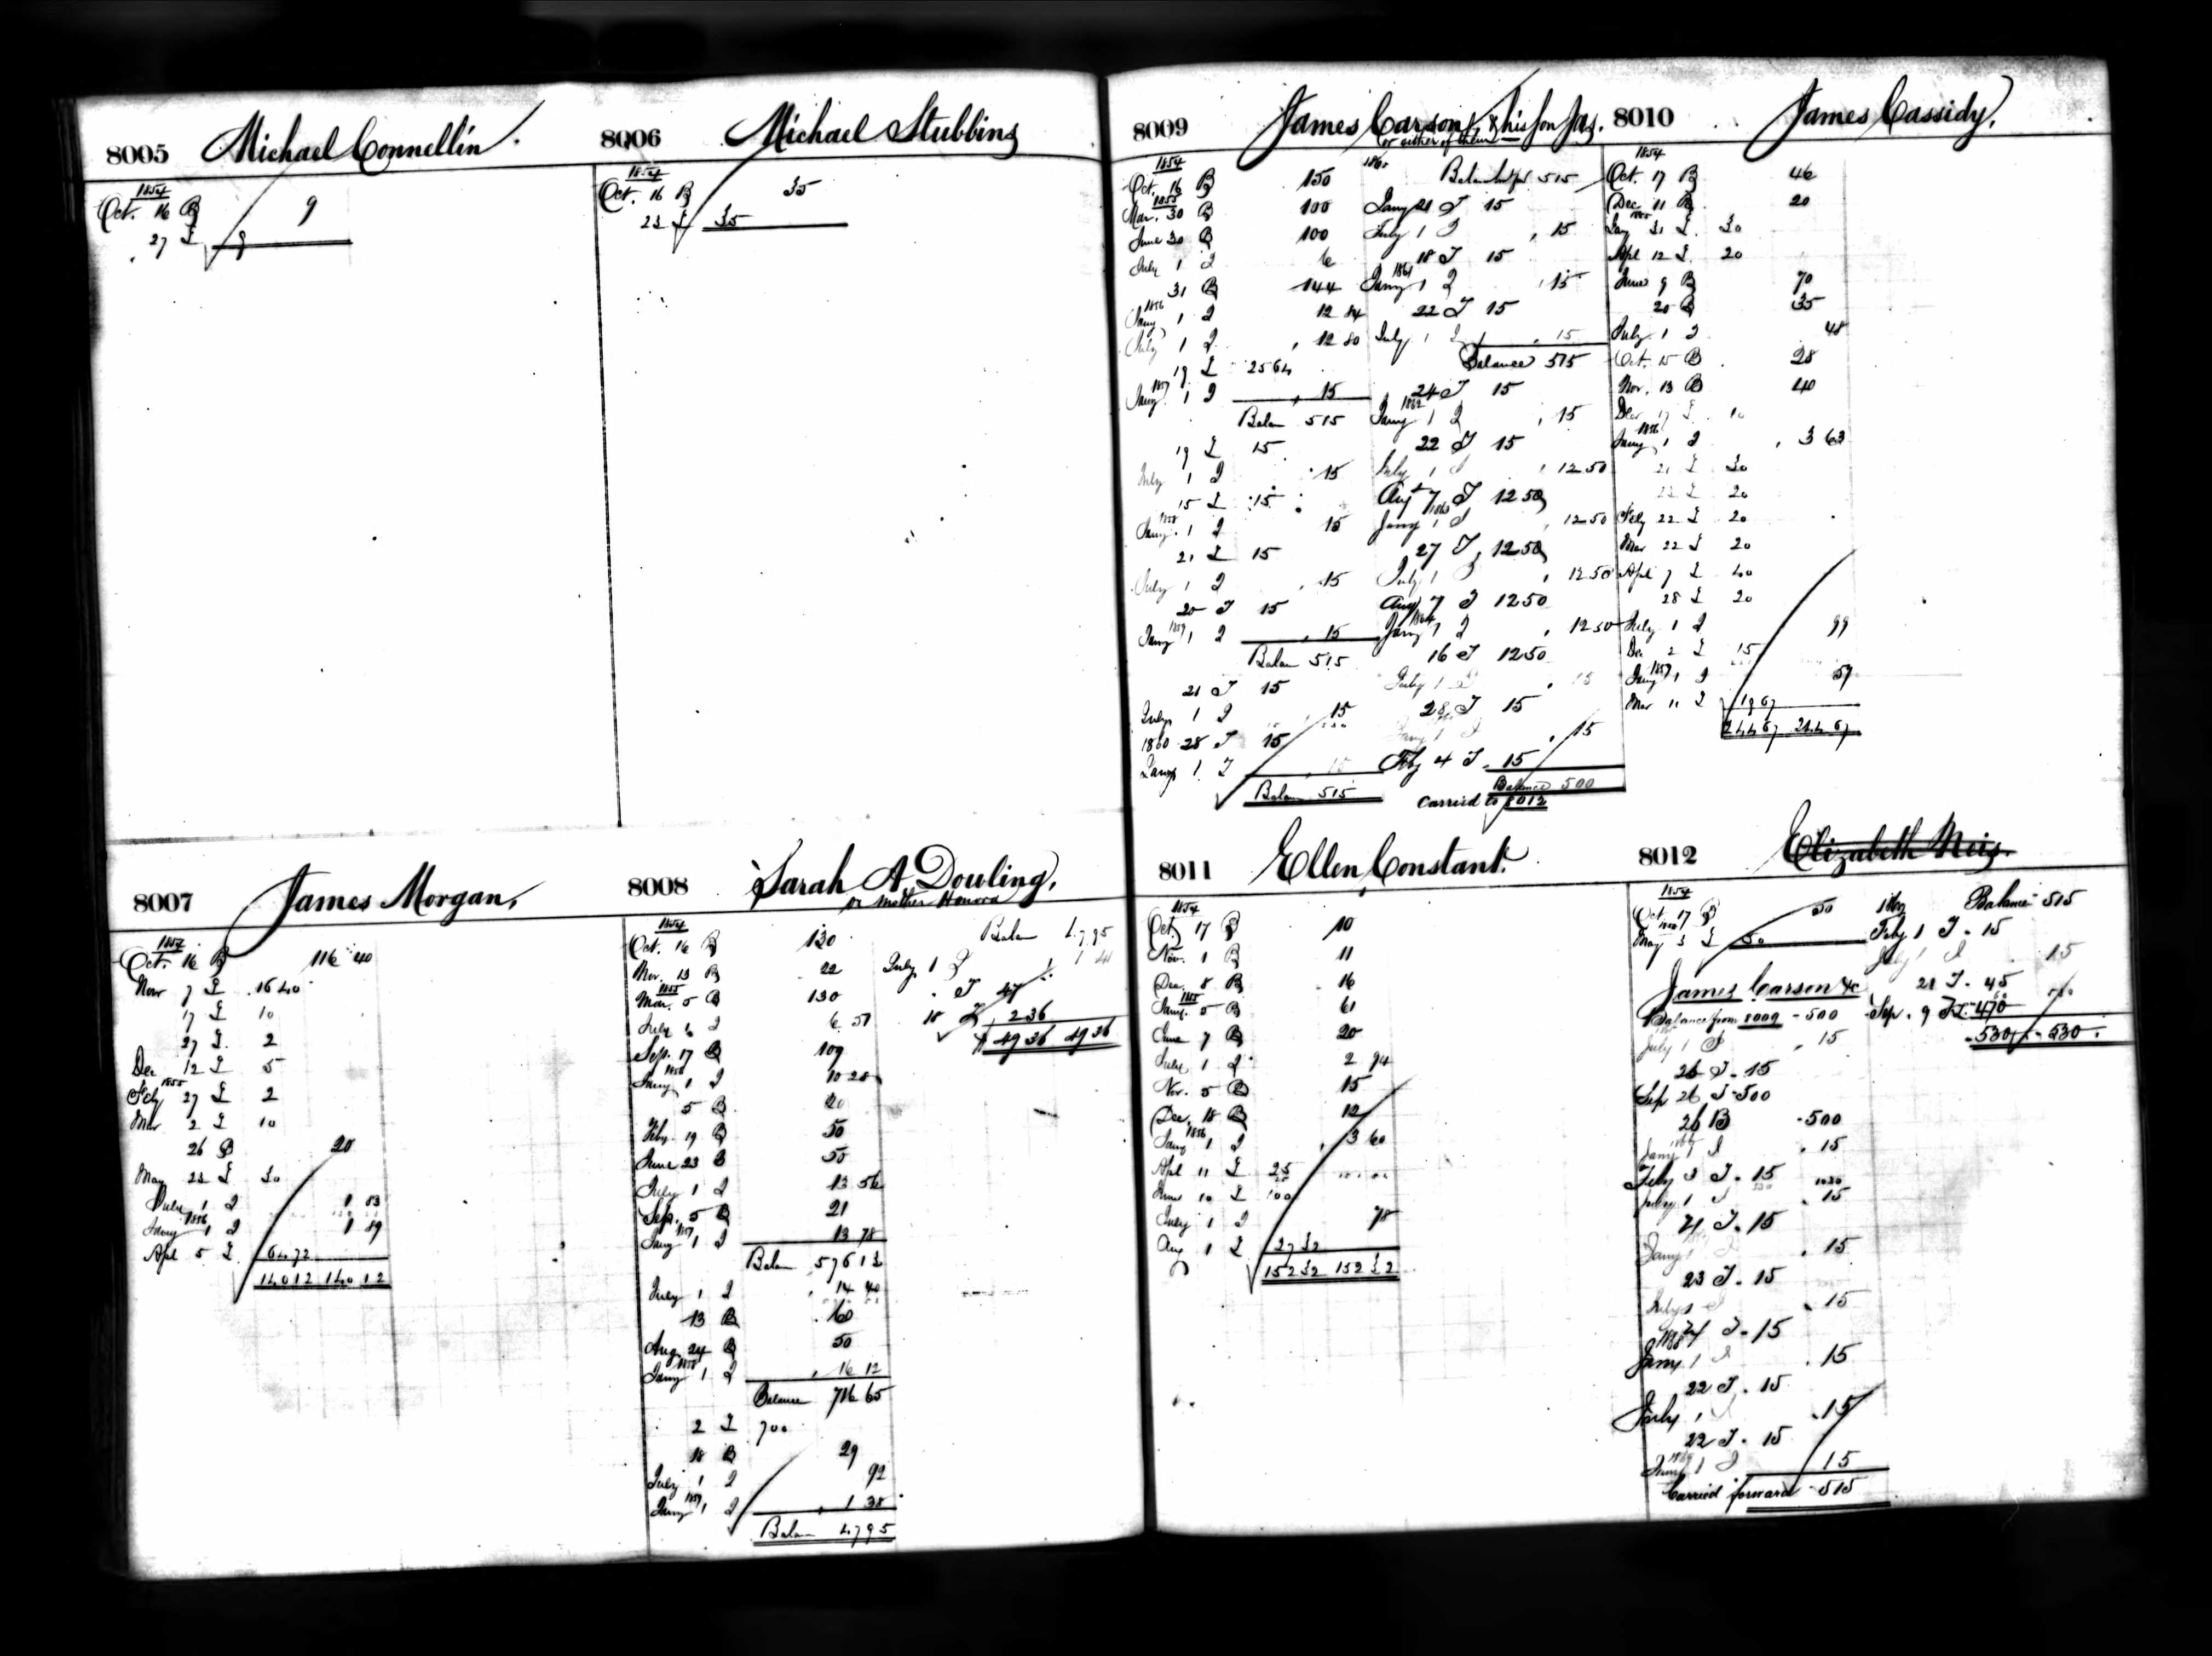 8005 Michael Connellin.
1854
Oct. 16 B 9
27 I 9
8006 Michael Stubbins
1854
Oct. 16 B 35
23 I 35
8007 James Morgan,
1854
Oct. 16 B 116 40
Nov 7 I 16 40
17 I 10
27 I 2
Dec 12 I 5
1855
Feby 27 I 2
Mar 2 I 10
26 B 20
May 23 I 30
July 1 I 1 83
1856
Jany 1 I 1 89
Apl 5 I 64 72
140 12 140 12
8008 Sarah A Dowling,
or Mother Honora
1854
Oct. 16 B 130
Nov. 13 B 22
1855
Mar. 5 B 130
July 1 I 6 57
Sep. 17 B 109
1856
Jany 1 I 10 28
5 B 20
Feby 19 B 50
June 23 B 50
July 1 I 13 56
Sep. 5 B 21
1857
Jany 1 I 13 78
Balan 576 13
July 1 I 14 40
13 B 60
Aug 24 B 50
1858
Jany 1 I 16 12
Balance 716 65
2 I 700
18 B 29
July 1 I 92
1859
Jany 1 I 1 38
Balan 47 95
Balan 47 95
July 1 I 1 41
I 47
18 I 2 36
49 36 49 36
8009 James Carson, & his son Jas.
or either of them
1854
Oct. 16 B 150
1855
Mar. 30 B 100
June 30 B 100
July 1 I 6
31 B 144
1856
Jany 1 I 12 84
July 1 I 12 80
19 I 25 64
1857
Jany 1 I 15
Balan 515
19 I 15
July 1 I 15
15 I 15
1858
Jany 1 I 15
21 I 15
July 1 I 15
20 I 15
1859
Jany 1 I 15
Balan 515
21 I 15
July 1 I 15
28 I 15
1860
Jany 1 I 15
Balan 515
1860
515
Jany 21 I 15
July 1 I 15
18 I 15
1861
Jany 1 I 15
22 I 15
July 1 I 15
Balance 515
24 I 15
1862
Jany 1 I 15
22 I 15
July 1 I 12 50
Augt 7 I 12 50
1863
Jany 1 I 12 50
27 I 12 50
July 1 I 12 50
Aug 7 I 12 50
1864
Jany 1 I 12 50
16 I 12 50
July 1 I 15
28 I 15
Jany 1 I 15
Feby 4 I 15
Balance 500
Carried to 8012
8010 James Cassidy,
1854
Oct. 17 B 46
Dec 11 B 20
1855
Jany 31 I 30
Apl 12 I 20
June 9 B 70
20 B 35
July 1 I 48
Oct. 15 B 28
Nov. 13 B 40
Dec 17 I 10
1856
Jany 1 I 3 63
21 I 30
22 I 20
Feby 22 I 20
Mar 22 I 20
Apl 7 I 40
28 I 20
July 1 I 99
Dec 2 I 15
1857
Jany 1 I 57
Mar 11 I 19 67
244 67 244 67
8011 Ellen Constant.
1854
Oct. 17 B 10
Nov. 1 B 11
Dec. 8 B 16
1855
Jany. 5 B 61
June 7 B 20
July 1 I 2 94
Nov. 5 B 15
Dec. 18 B 12
1856
Jany 1 I 3 60
Apl 11 I 25
June 10 I 100
July 1 I 78
Aug 1 I 27 32
152 32 152 32
8012 Elizabeth Meiz.
1854
Oct 17 B 50
May 3 I 50
James Carson &c
Balance from 8009 - 500
July 1 I 15
26 I - 15
Sep 26 I - 500
26 B - 500
1866
Jany 1 I 15
Feby 3 I - 15
July 1 I 15
21 I - 15
Jany 1 I 15
23 I - 15
July 1 I 15
24 I - 15
1868
Jany 1 I 15
22 I - 15
July 1 I 15
22 I - 15
1869
Jany 1 I 15
Carried forward 515
Balance 515
Feby 1 I - 15
July 1 I 15
21 I - 45
Sep. 9 I - 470
530 - 530